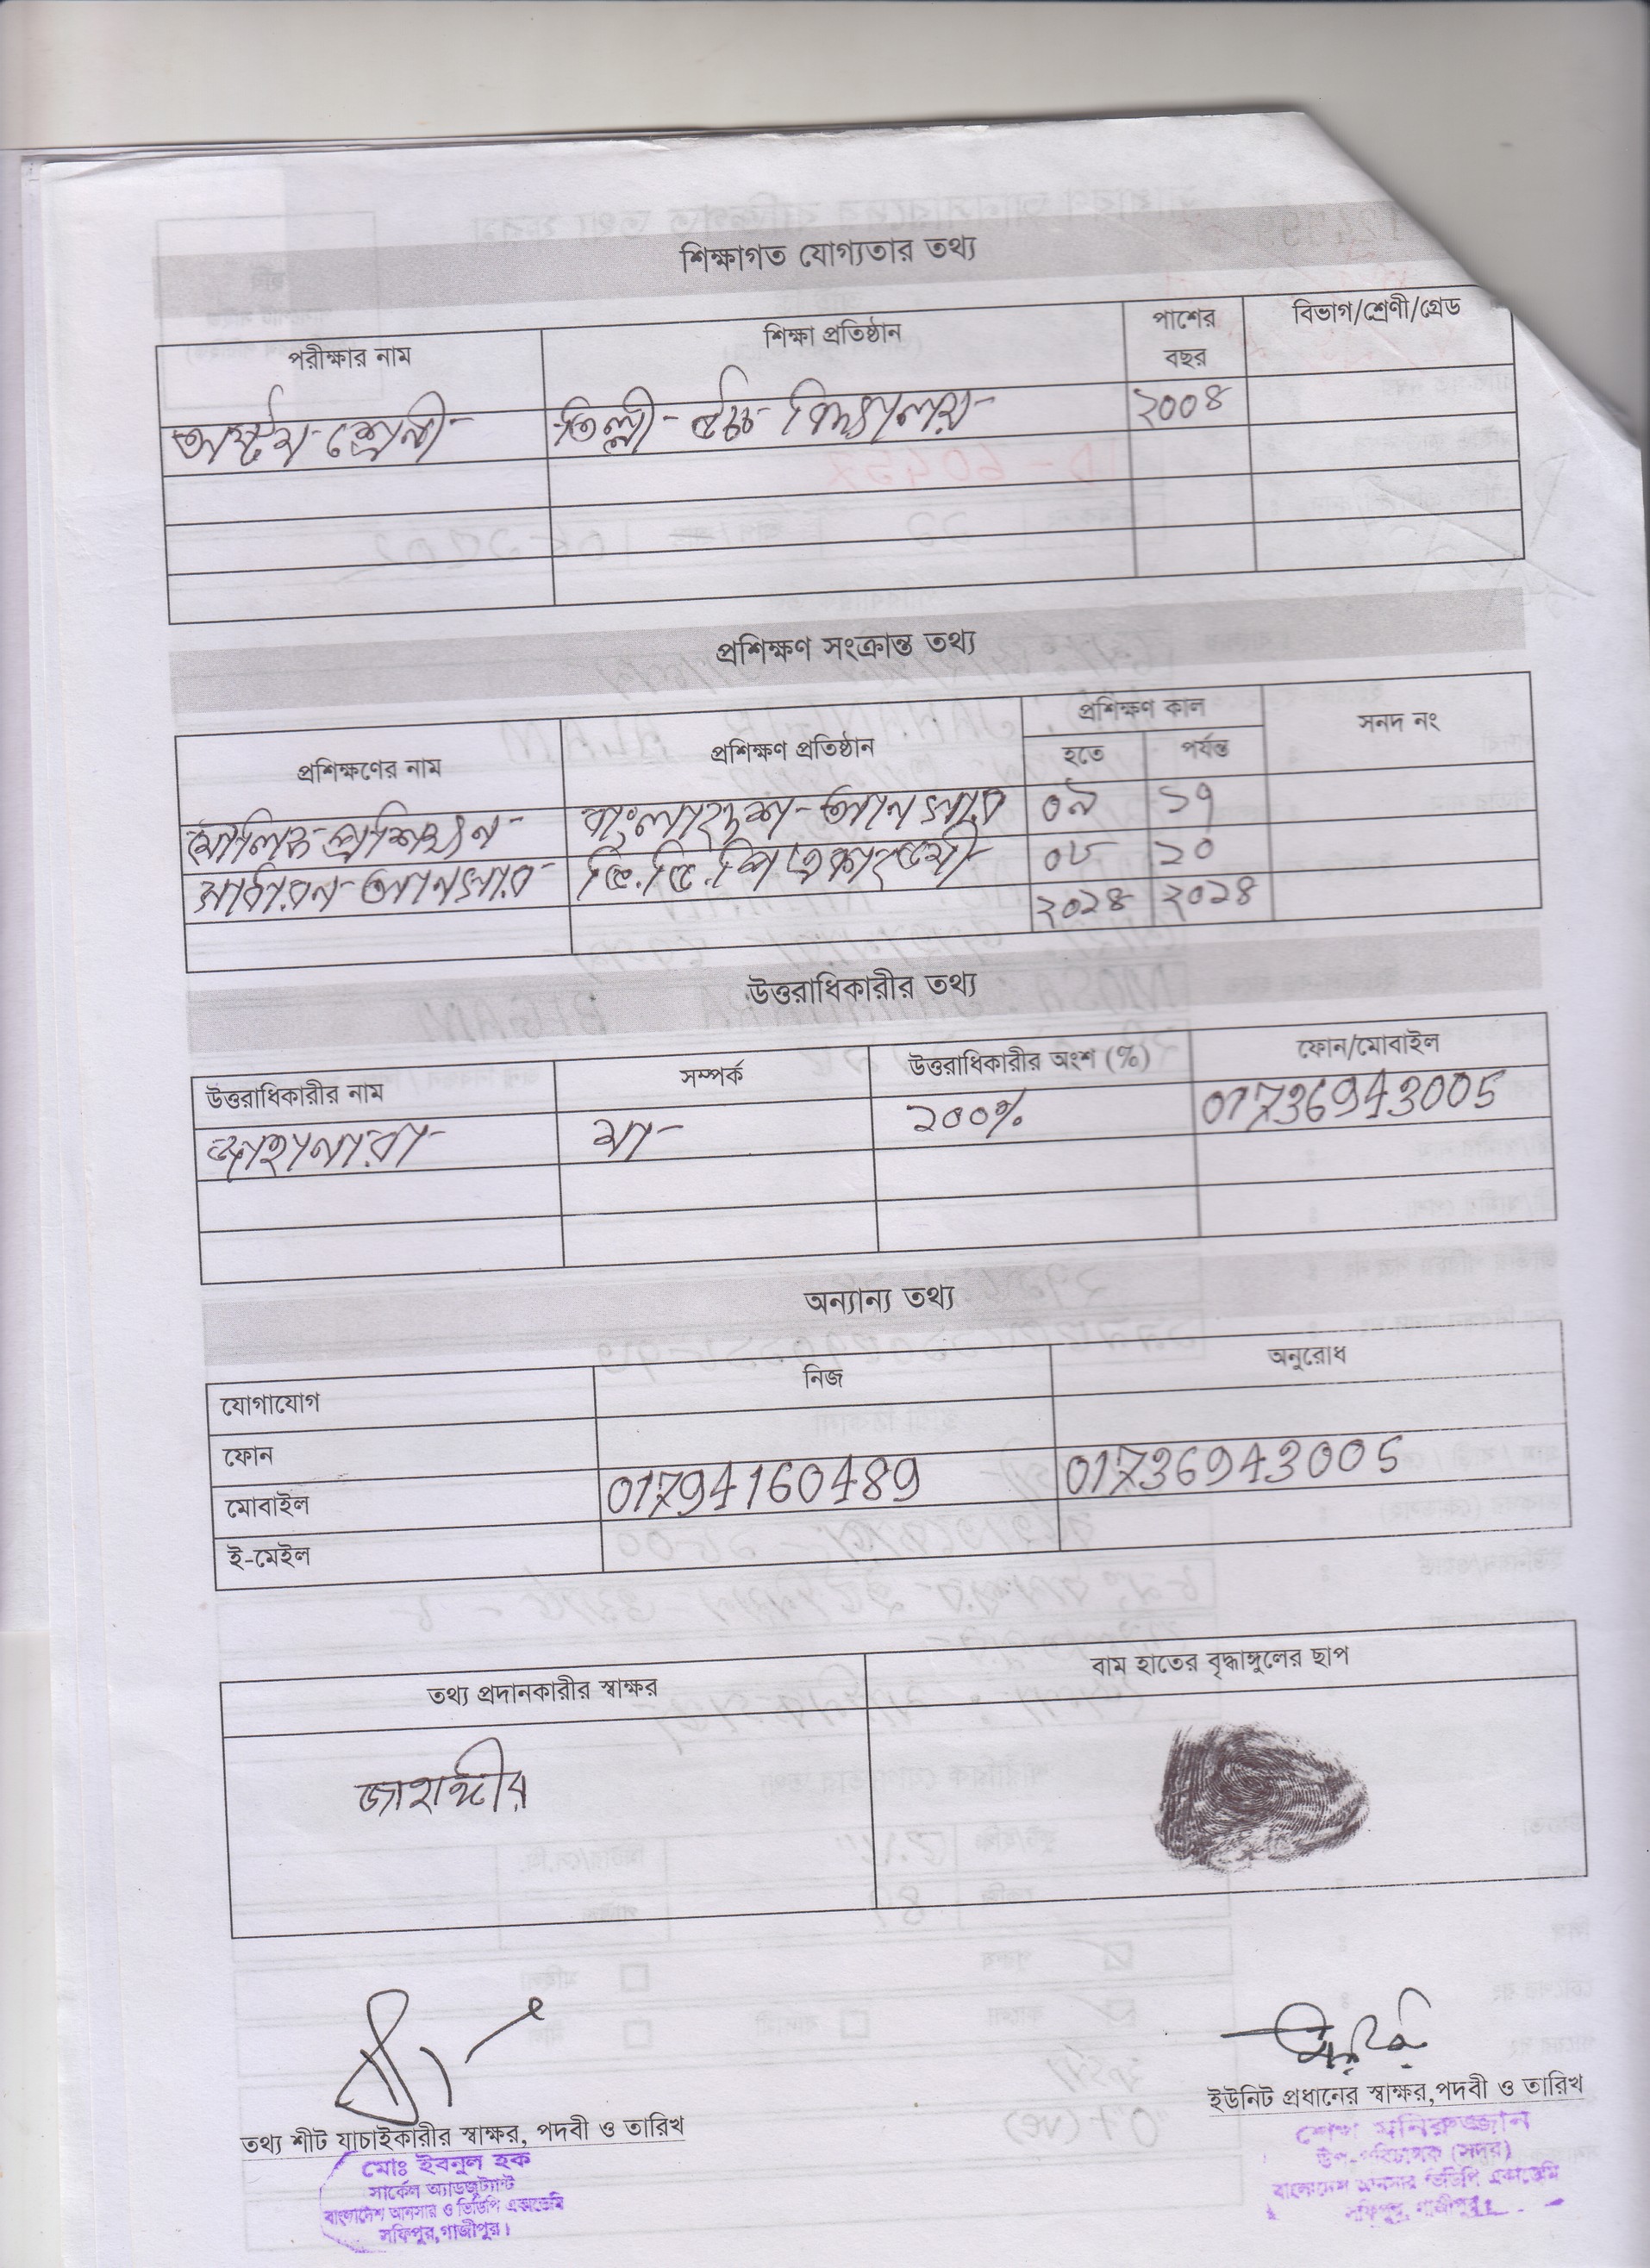 শিক্ষাগত যোগ্যতার তথ্য
পরীক্ষার নাম শিক্ষা প্রতিষ্ঠান পাশের বছর বিভাগ/শ্রেণী/গ্রেড
অষ্টম শ্রেনী তিল্লী উচ্চ বিদ্যালয় ২০০৪
প্রশিক্ষণ সংক্রান্ত তথ্য
প্রশিক্ষণের নাম প্রশিক্ষণ প্রতিষ্ঠান প্রশিক্ষণ কাল সনদ নং
হতে পর্যন্ত
মৌলিক প্রশিক্ষন বাংলাদেশ আনসার ০৯ ১৭
সাধারন আনসার ভি.ডি.পি একাডেমী ০৮ ১০
২০১৪ ২০১৪
উত্তরাধিকারীর তথ্য
উত্তরাধিকারীর নাম সম্পর্ক উত্তরাধিকারীর অংশ (%) ফোন/মোবাইল
জাহানারা মা ১০০% 01736943005
অন্যান্য তথ্য
যোগাযোগ নিজ অনুরোধ
ফোন
মোবাইল 01794160489 01736943005
ই-মেইল
তথ্য প্রদানকারীর স্বাক্ষর বাম হাতের বৃদ্ধাঙ্গুলের ছাপ
জাহাঙ্গীর
তথ্য শীট যাচাইকারীর স্বাক্ষর, পদবী ও তারিখ
মোঃ ইবনুল হক
সার্কেল অ্যাডজুট্যান্ট
বাংলাদেশ আনসার ও ভিডিপি একাডেমি
সফিপুর, গাজীপুর।
ইউনিট প্রধানের স্বাক্ষর,পদবী ও তারিখ
শেখ মনিরুজ্জামান
উপ-পরিচালক (সদর)
বাংলাদেশ আনসার ভিডিপি একাডেমি
সফিপুর, গাজীপুর।